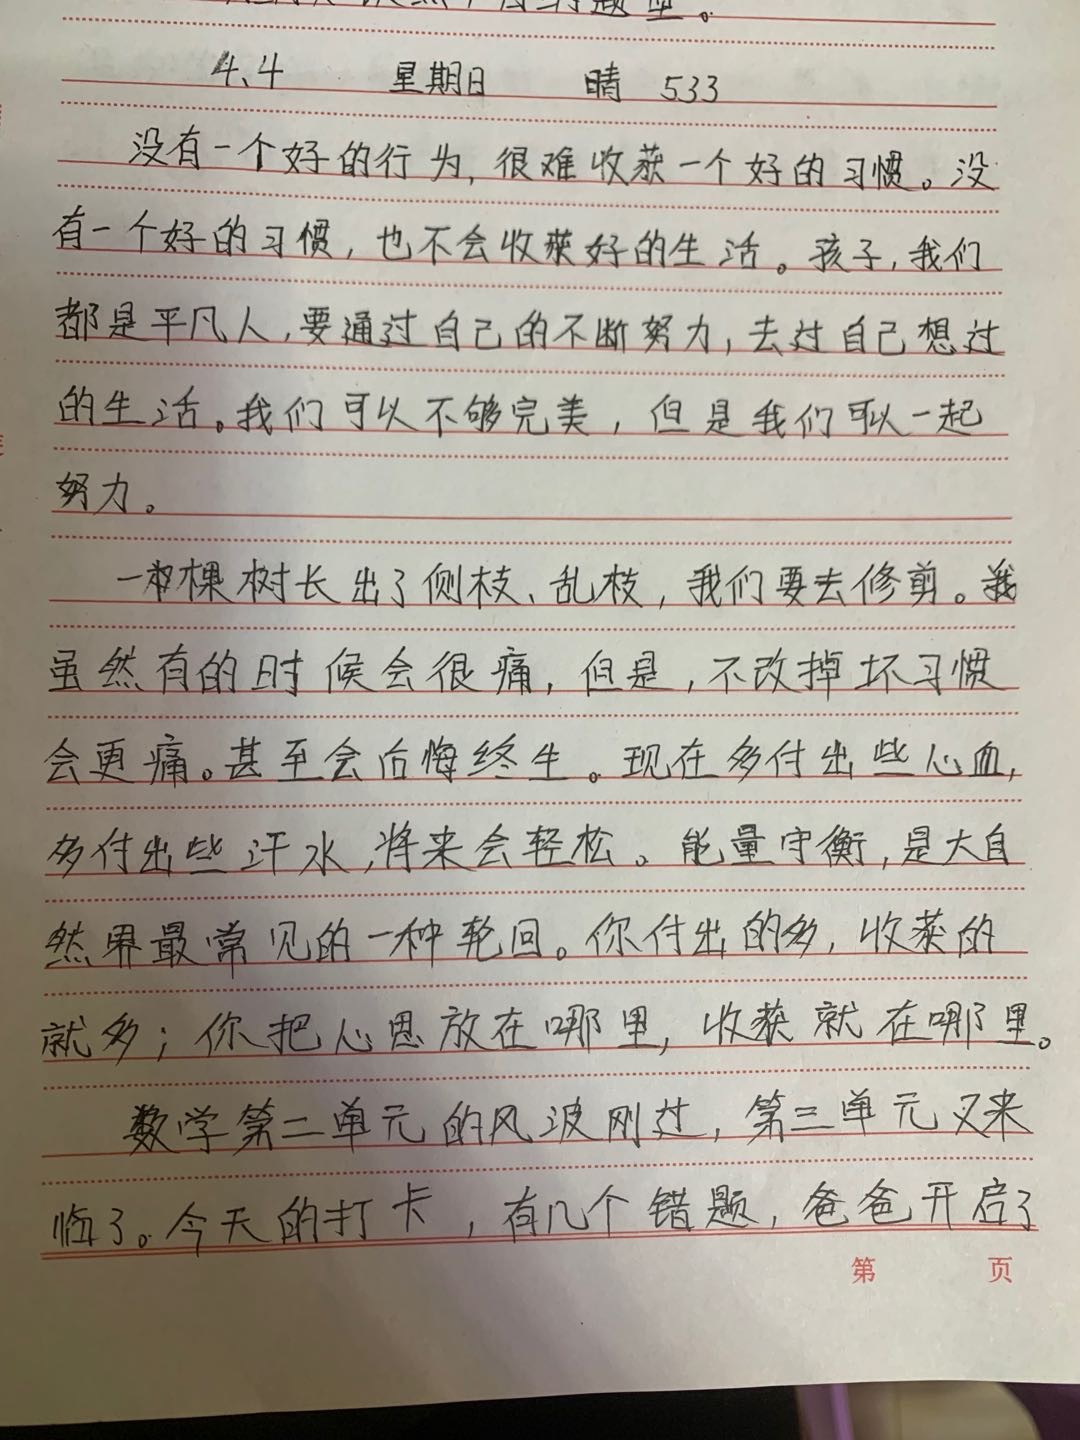 题型。
4、4 星期日 晴 533
没有一个好的行为,很难收获一个好的习惯。没
有一个好的习惯,也不会收获好的生活。孩子,我们
都是平凡人,要通过自己的不断努力,去过自己想过
的生活。我们可以不够完美,但是我们可以一起
努力。
一棵树长出了侧枝、乱枝,我们要去修剪。我
虽然有的时候会很痛,但是,不改掉坏习惯
会更痛。甚至会后悔终生。现在多付出些心血,
多付出些汗水,将来会轻松。能量守衡,是大自
然界最常见的一种轮回。你付出的多,收获的
就多;你把心思放在哪里,收获就在哪里。
数学第二单元的风波刚过,第三单元又来
临了。今天的打卡,有几个错题,爸爸开启了
第 页